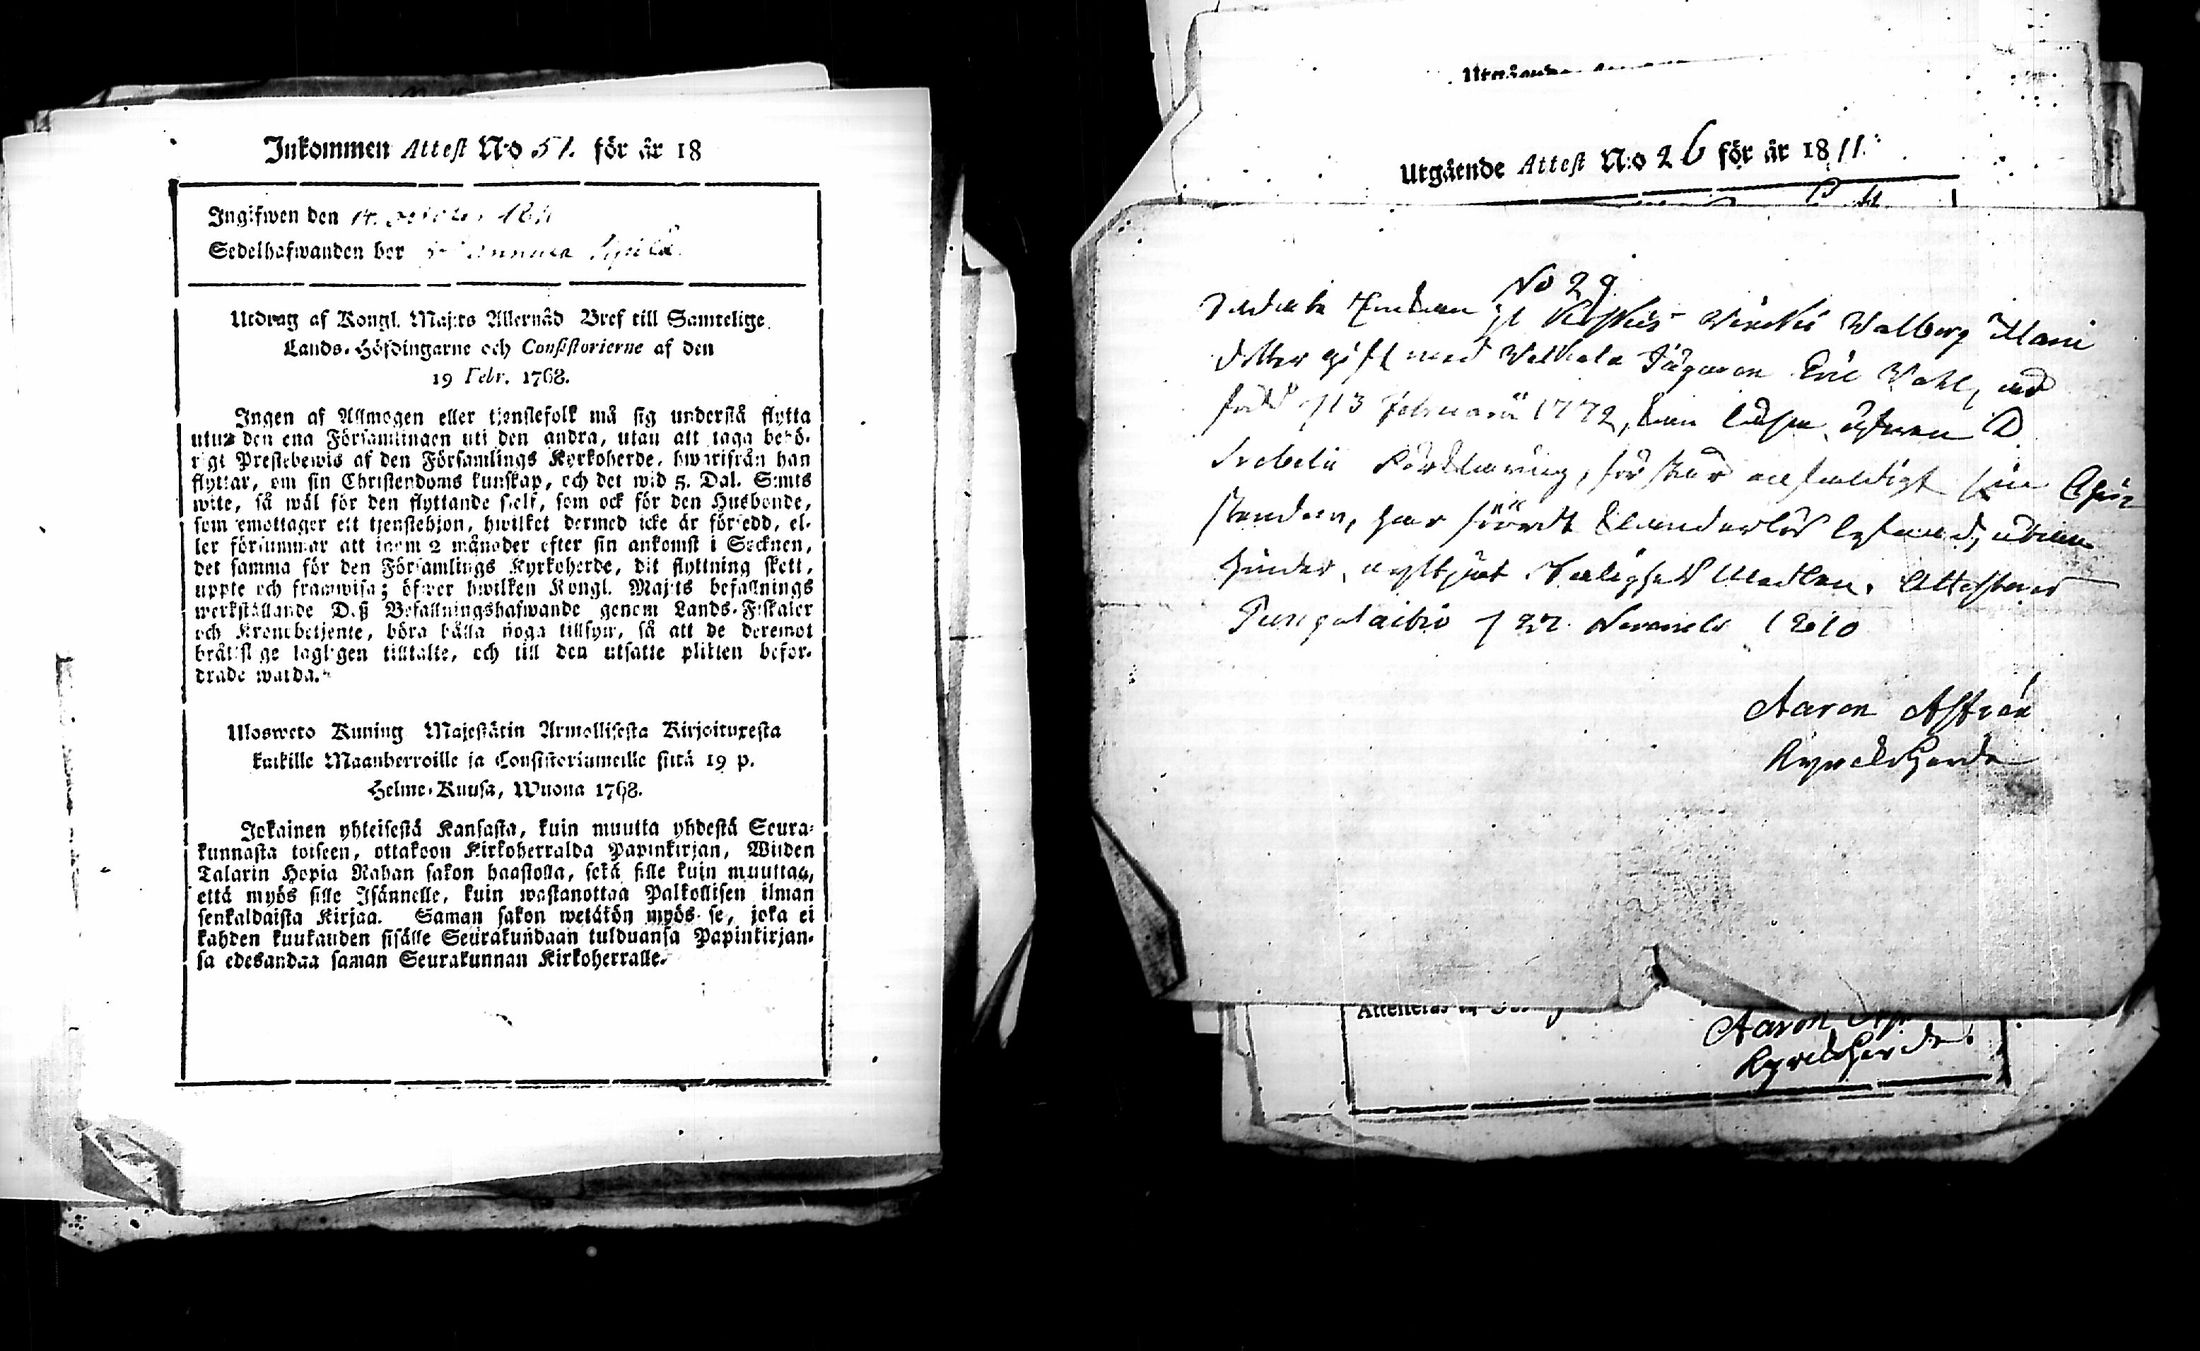 Inkommen Attest N:o 51. för år 18
Ingifwen den 14. october 1811
Sedelhafwanden bor
Utdrag af Kongl. Maj:ts Allernåd Bref till Samtelige
Lands-Höfdingarne och Consistorierne af den
19 Febr. 1768.
Ingen af Allmogen eller tjenstefolk må sig understå flytta
utur den ena Församlingen uti den andra, utan att taga behö-
rigt Prestebewis af den Församlings Kyrkoherde, hwarifrån han
flyttar, om sin Christendoms kunskap, och det wid 5. Dal. S:mts
wite, så wäl för den flyttande sjelf, som ock för den Husbonde,
som emottager ett tjenstehjon, hwilket dermed icke är försedd, el-
ler försummar att inom 2 månader efter sin ankomst i Socknen,
det samma för den Församlings Kyrkoherde, dit flyttning skett,
uppte och framwisa; öfwer hwilken Kongl. Maj:ts befallnings
werkställande Deß Befallningshafwande genom Lands-Fiskaler
och Kronobetjente, böra hålla noga tillsyn, så att de deremot
bråtslige lagligen tilltalte, och till den utsatte plikten befor-
drade warda."
Ulosweto Kuning Majestätin Armollisesta Kirjoituxesta
kaikille Maanherroille ja Consistoriumeille siitä 19 p.
Helme-Kuusa, Wuona 1768.
Jokainen yhteisestä Kansasta, kuin muutta yhdestä Seura-
kunnasta toiseen, ottakoon Kirkoherralda Papinkirjan, Wiiden
Talarin Hopia Rahan sakon haastolla, sekä sille kuin muuttaa,
että myös sille Isännelle, kuin wastanottaa Palkollisen ilman
senkaldaista Kirjaa. Saman sakon wetätön myös se, joka ei
kahden kuukauden sisälle Seurakundaan tulduansa Papinkirjan-
sa edesandaa saman Seurakunnan Kirkoherralle.
Utgående Attest N:o 26 för år 1811.
No 29
Walberg Mani
dotter gift med Jägaren Eric Wahl,
född d 13 Februarii 1772, kan läsa utan D
Svebelii Förklaring, förstår enfaldigt sin Chris
tendom, har fört klanderlös lefnad,
hinder, nyttjat Salighets Medlen. Attesterar
Pungalaitio d 22 Novemb 1810
Aaron
Kyrckoherde
Aaron
Kyrckoherde.